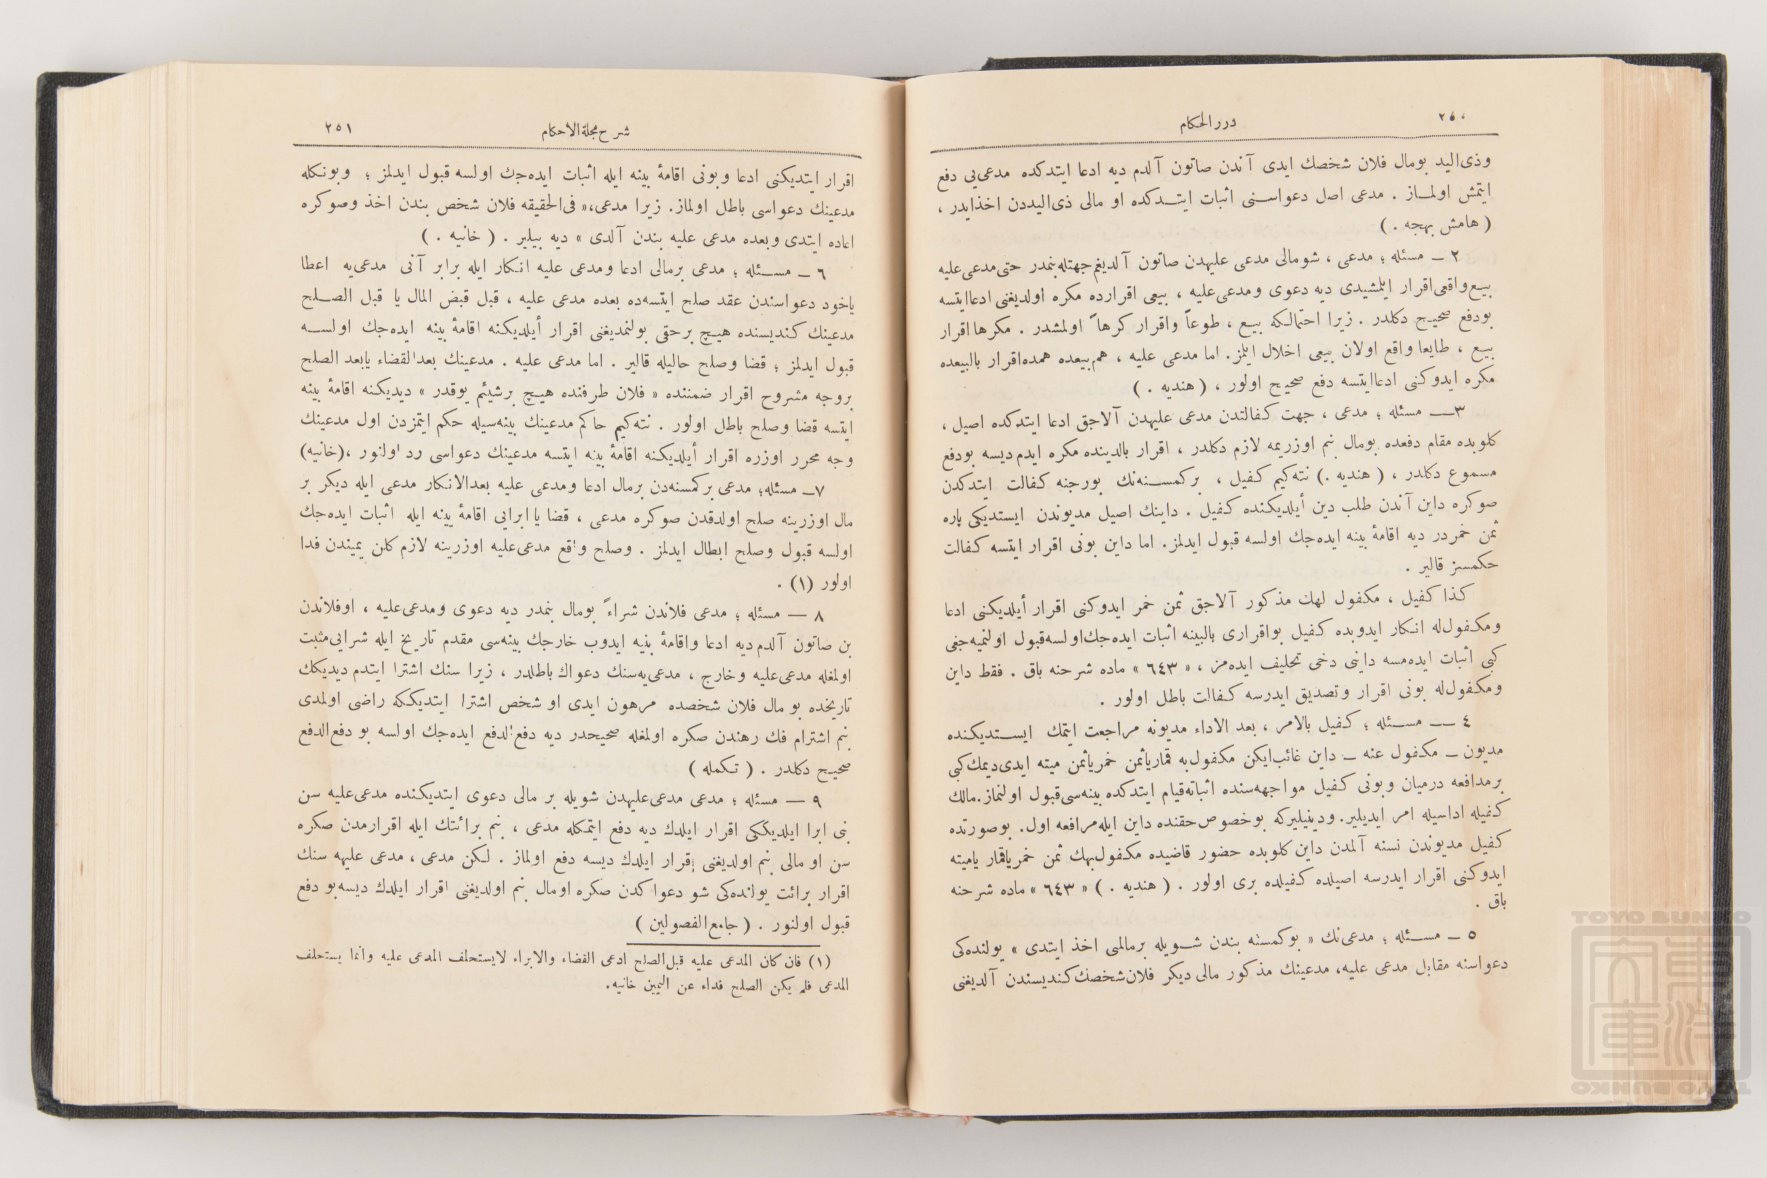 ٢٥٠
درر الحكام
وذى اليد بومال فلان شخصك ايدى آندن صاتون آلدم ديه ادعا ايتدكده مدعى يى دفع
ايتمش اولماز . مدعى اصل دعواسنى اثبات ايتدكده او مالى ذى اليددن اخذ ايدر ،
( هامش بهجه . )
٢ ـ مسئله ؛ مدعى ، شومالى مدعى عليهدن صاتون آلديغم جهتله بنمدر حتى مدعى عليه
بيع واقعى اقرار ايلمشيدى ديه دعوى ومدعى عليه ، بيعى اقرارده مكره اولديغنى ادعا ايتسه
بودفع صحيح دكلدر . زيرا احتمالكه بيع ، طوعاً واقرار كرهاً اولمشدر . مكرها اقرار
بيع ، طايعا واقع اولان بيعى اخلال ايلمز. اما مدعى عليه ، هم بيعده همده اقرار بالبيعده
مكره ايدوكنى ادعا ايتسه دفع صحيح اولور ، ( هنديه . )
٣ ـ مسئله ؛ مدعى ، جهت كفالتدن مدعى عليهدن آلاجق ادعا ايتدكده اصيل ،
كلوبده مقام دفعده بومال بنم اوزريمه لازم دكلدر ، اقرار بالدينده مكره ايدم ديسه بودفع
مسموع دكلدر ، ( هنديه .) نته كيم كفيل ، بركمسنه نك بورجنه كفالت ايتدكدن
صوكره داين آندن طلب دين أيلديكنده كفيل . داينك اصيل مديوندن ايستديكى پاره
ثمن خمردر ديه اقامهٔ بينه ايده جك اولسه قبول ايدلمز. اما داين بونى اقرار ايتسه كفالت
حكمسز قالير .
كذا كفيل ، مكفول لهك مذكور آلاجق ثمن خمر ايدوكنى اقرار أيلديكنى ادعا
ومكفول له انكار ايدوبده كفيل بواقرارى بالبينه اثبات ايده جك اولسه قبول اولنميه جغى
كبى اثبات ايده مسه داينى دخى تحليف ايده مز ، « ٦٤٣ » ماده شرحنه باق . فقط داين
ومكفول له بونى اقرار وتصديق ايدرسه كفالت باطل اولور .
٤ ـ مسئله ؛ كفيل بالامر ، بعد الاداء مديونه مراجعت ايتمك ايستديكنده
مديون ـ مكفول عنه ـ داين غائب ايكن مكفول به قمار ياثمن خمر ياثمن ميته ايدى ديمك كبى
برمدافعه درميان وبونى كفيل مواجهه سنده اثباته قيام ايتدكده بينه سى قبول اولنماز. مالك
كفيله اداسيله امر ايديلير. ودينيليركه بوخصوص حقنده داين ايله مرافعه اول. بوصورتده
كفيل مديوندن نسنه آلمدن داين كلوبده حضور قاضيده مكفول بهك ثمن خمر ياقمار ياميته
ايدوكنى اقرار ايدرسه اصيلده كفيلده برى اولور . ( هنديه . ) « ٦٤٣ » ماده شرحنه
باق .
٥ ـ مسئله ؛ مدعى نك « بوكمسنه بندن شويله برمالمى اخذ ايتدى » يولنده كى
دعواسنه مقابل مدعى عليه، مدعينك مذكور مالى ديكر فلان شخصك كنديسندن آلديغنى
شرح مجلة الاحكام
٢٥١
اقرار ايتديكنى ادعا وبونى اقامهٔ بينه ايله اثبات ايده جك اولسه قبول ايدلمز ؛ وبونكله
مدعينك دعواسى باطل اولماز. زيرا مدعى، « فى الحقيقه فلان شخص بندن اخذ وصوكره
اعاده ايتدى وبعده مدعى عليه بندن آلدى » ديه بيلير . ( خانيه . )
٦ ـ مسئله ؛ مدعى برمالى ادعا ومدعى عليه انكار ايله برابر آنى مدعى يه اعطا
ياخود دعواسندن عقد صلح ايتسه ده بعده مدعى عليه ، قبل قبض المال يا قبل الصلح
مدعينك كنديسنده هيچ برحقى بولنمديغنى اقرار أيلديكنه اقامهٔ بينه ايده جك اولسه
قبول ايدلمز ؛ قضا وصلح حاليله قالير . اما مدعى عليه . مدعينك بعد القضاء يابعد الصلح
بروجه مشروح اقرار ضمننده « فلان طرفنده هيچ برشيئم يوقدر » ديديكنه اقامهٔ بينه
ايتسه قضا وصلح باطل اولور . نته كيم حاكم مدعينك بينه سيله حكم ايتمزدن اول مدعينك
وجه محرر اوزره اقرار أيلديكنه اقامهٔ بينه ايتسه مدعينك دعواسى رد اولنور ،(خانيه)
٧ـ مسئله؛ مدعى بركمسنه دن برمال ادعا ومدعى عليه بعد الانكار مدعى ايله ديكر بر
مال اوزرينه صلح اولدقدن صوكره مدعى ، قضا يا ابرايى اقامهٔ بينه ايله اثبات ايده جك
اولسه قبول وصلح إبطال ايدلمز . وصلح واقع مدعى عليه اوزرينه لازم كلن يميندن فدا
اولور (١) .
٨ ـ مسئله ؛ مدعى فلاندن شراءً بومال بنمدر ديه دعوى ومدعى عليه ، اوفلاندن
بن صاتون آلدم ديه ادعا واقامهٔ بنيه ايدوب خارجك بينه سى مقدم تاريخ ايله شرايى مثبت
اولمغله مدعى عليه وخارج ، مدعى يه سنك دعواك باطلدر ، زيرا سنك اشترا ايتدم ديديكك
تاريخده بو مال فلان شخصده مرهون ايدى او شخص اشترا ايتديككه راضى اولمدى
بنم اشترام فك رهندن صكره اولمغله صحيحدر ديه دفع الدفع ايده جك اولسه بو دفع الدفع
صحيح دكلدر . ( تكمله )
٩ ـ مسئله ؛ مدعى مدعى عليهدن شويله بر مالى دعوى ايتديكنده مدعى عليه سن
بنى ابرا ايلديككى اقرار ايلدك ديه دفع ايتمكله مدعى ، بنم برائتك ايله اقرارمدن صكره
سن او مالى بنم اولديغنى إقرار ايلدك ديسه دفع اولماز . لكن مدعى ، مدعى عليه سنك
اقرار برائت يولنده كى شو دعوا كدن صكره اومال بنم اولديغنى اقرار ايلدك ديسه بو دفع
قبول اولنور . ( جامع الفصولين )
(١) فان كان المدعى عليه قبل الصلح ادعى القضاء والابراء لايستحلف المدعى عليه وانما يستحلف
المدعى فلم يكن الصلح فداء عن اليمين خانيه.
TOYO BUNKO
東洋文庫
TOYO BUNKO